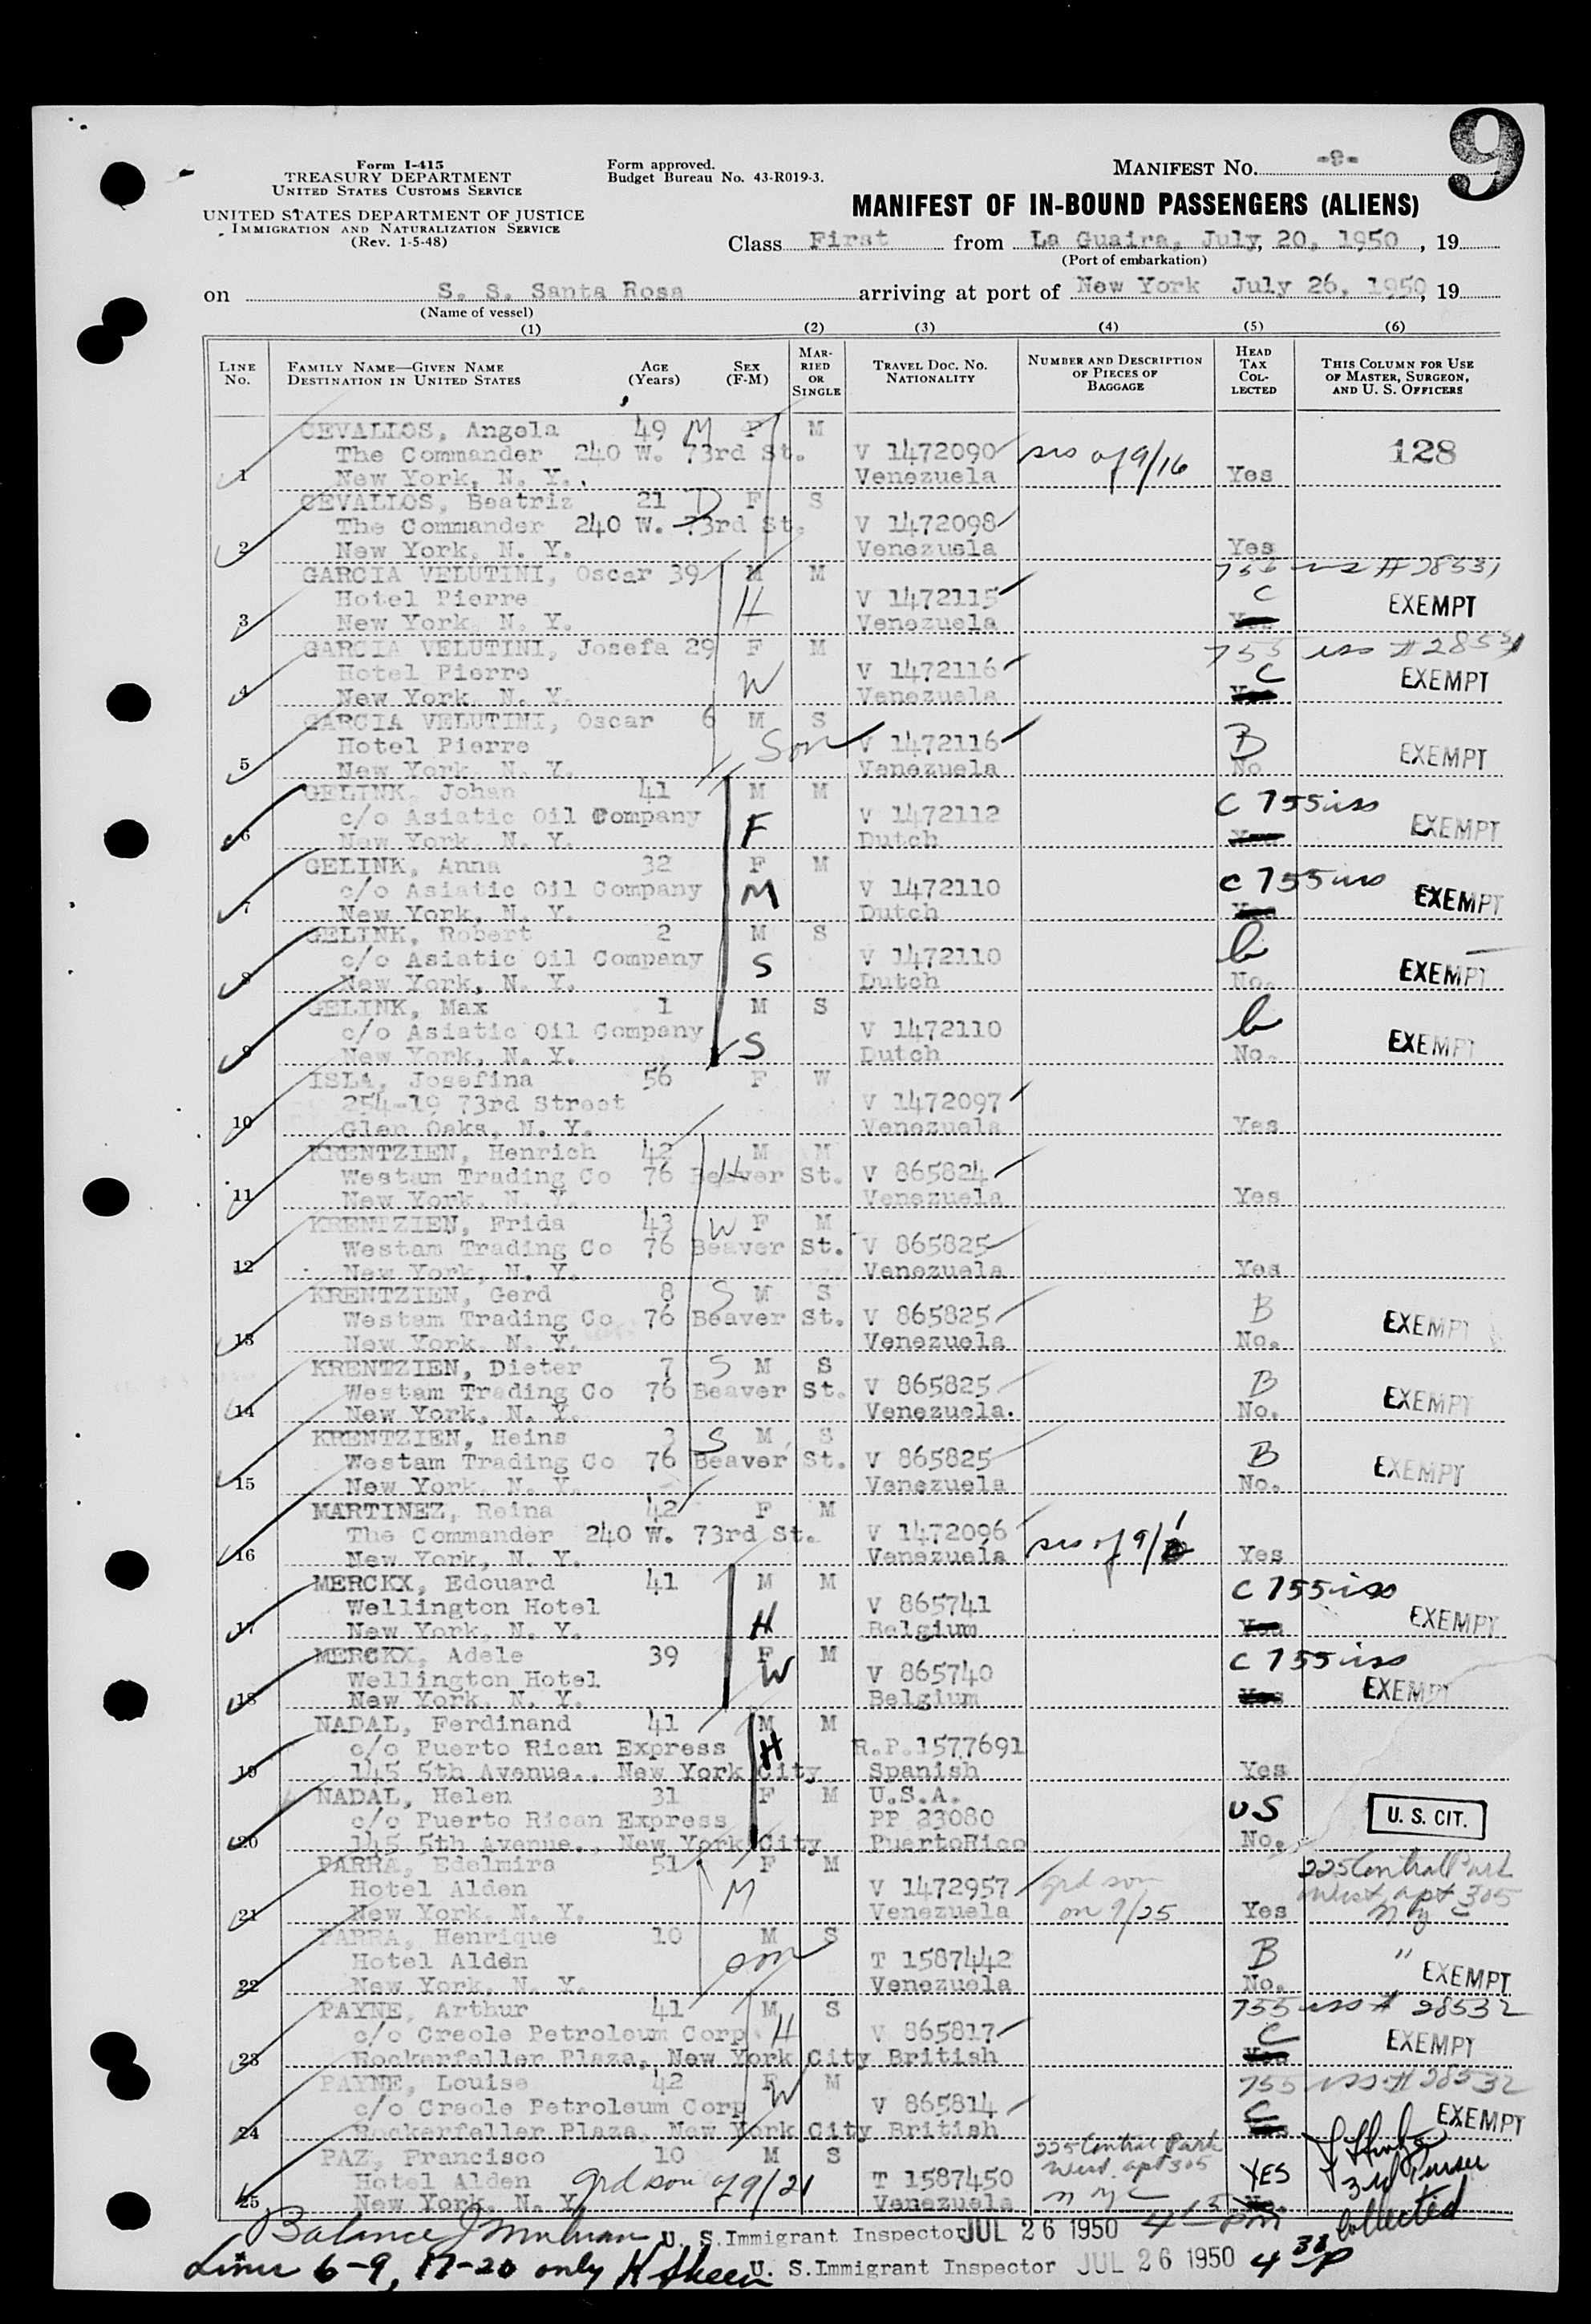 9
Form I-415
TREASURY DEPARTMENT
UNITED STATES CUSTOMS SERVICE
UNITED STATES DEPARTMENT OF JUSTICE
IMMIGRATION AND NATURALIZATION SERVICE
(Rev. 1-5-48)
Form approved.
Budget Bureau No. 43-R019-3.
MANIFEST NO. -9-
MANIFEST OF IN-BOUND PASSENGERS (ALIENS)
Class First from La Guaira, July, 20, 1950, 19
(Port of embarkation)
on S. S. Santa Rosa arriving at port of New York July 26, 1950, 19
(Name of vessel)
(1) (2) (3) (4) (5) (6)
LINE NO. FAMILY NAME—GIVEN NAME DESTINATION IN UNITED STATES AGE (YEARS) SEX (F-M) MARRIED OR SINGLE TRAVEL DOC. NO. NATIONALITY NUMBER AND DESCRIPTION OF PIECES OF BAGGAGE HEAD TAX COLLECTED THIS COLUMN FOR USE OF MASTER, SURGEON, AND U. S. OFFICERS
CEVALLOS, Angela 49 M F M
The Commander 240 W. 73rd St. V 1472090 sis of 9/16 128
1 New York, N. Y. Venezuela Yes
CEVALLOS, Beatriz 21 D F S
The Commander 240 W. 73rd St. V 1472098
2 New York, N. Y. Venezuela Yes
GARCIA VELUTINI, Oscar 39 M M 755 iss # 28531
Hotel Pierre H V 1472115 C EXEMPT
3 New York, N. Y. Venezuela Yes
GARCIA VELUTINI, Josefa 29 F M 755 iss # 28531
Hotel Pierre W V 1472116 C EXEMPT
4 New York, N. Y. Venezuela Yes
GARCIA VELUTINI, Oscar 6 M S
Hotel Pierre Son V 1472116 B EXEMPT
5 New York, N. Y. Venezuela No
GELINK, Johan 41 M M C 755 iss
c/o Asiatic Oil Company F V 1472112 EXEMPT
6 New York, N. Y. Dutch Yes
GELINK, Anna 32 F M C 755 iss
c/o Asiatic Oil Company M V 1472110 EXEMPT
7 New York, N. Y. Dutch Yes
GELINK, Robert 2 M S b
c/o Asiatic Oil Company S V 1472110 EXEMPT
8 New York, N. Y. Dutch No.
GELINK, Max 1 M S b
c/o Asiatic Oil Company S V 1472110 EXEMPT
9 New York, N. Y. Dutch No.
ISLA, Josefina 56 F W
254-19 73rd Street V 1472097
10 Glen Oaks, N. Y. Venezuela Yes
KRENTZIEN, Henrich 42 M M
Westam Trading Co 76 Beaver St. H V 865824
11 New York, N. Y. Venezuela Yes
KRENTZIEN, Frida 43 W F M
Westam Trading Co 76 Beaver St. V 865825
12 New York, N. Y. Venezuela Yes
KRENTZIEN, Gerd 8 S M S B
Westam Trading Co 76 Beaver St. V 865825 EXEMPT
13 New York, N. Y. Venezuela No.
KRENTZIEN, Dieter 7 S M S B
Westam Trading Co 76 Beaver St. V 865825 EXEMPT
14 New York, N. Y. Venezuela. No.
KRENTZIEN, Heins 3 S M S B
Westam Trading Co 76 Beaver St. V 865825 EXEMPT
15 New York, N. Y. Venezuela No.
MARTINEZ, Reina 42 F M
The Commander 240 W. 73rd St. V 1472096 sis of 9/1
16 New York, N. Y. Venezuela Yes
MERCKX, Edouard 41 M M C 755 iss
Wellington Hotel H V 865741 EXEMPT
17 New York, N. Y. Belgium Yes
MERCKX, Adele 39 F M C 755 iss
Wellington Hotel W V 865740 EXEMPT
18 New York, N. Y. Belgium Yes
NADAL, Ferdinand 41 M M
c/o Puerto Rican Express H R.P.1577691
19 145 5th Avenue., New York City Spanish Yes
NADAL, Helen 31 F M U.S.A. US
c/o Puerto Rican Express PP 23080 U. S. CIT.
20 145 5th Avenue., New York City PuertoRico No.
PARRA, Edelmira 51 F M 225 Central Park
Hotel Alden M V 1472957 grd son West, apt 305
21 New York, N. Y. Venezuela on 9/25 Yes N Y C
PARRA, Henrique 10 M S B "
Hotel Alden son T 1587442 EXEMPT
22 New York, N. Y. Venezuela No.
PAYNE, Arthur 41 M S 755 iss # 28532
c/o Creole Petroleum Corp H V 865817 C EXEMPT
23 Rockerfeller Plaza, New York City British Yes
PAYNE, Louise 42 F M 755 iss # 28532
c/o Creole Petroleum Corp W V 865814 C EXEMPT
24 Rockerfeller Plaza, New York City British Yes
PAZ, Francisco 10 M S 225 Central Park
Hotel Alden grd son of 9/21 T 1587450 West, apt 305 YES 3rd Purser
25 New York, N. Y. Venezuela N Y C No. Collected
Balance U. S. Immigrant Inspector JUL 26 1950 4 15 PM
Lines 6-9, 17-20 only U. S. Immigrant Inspector JUL 26 1950 4 38 P